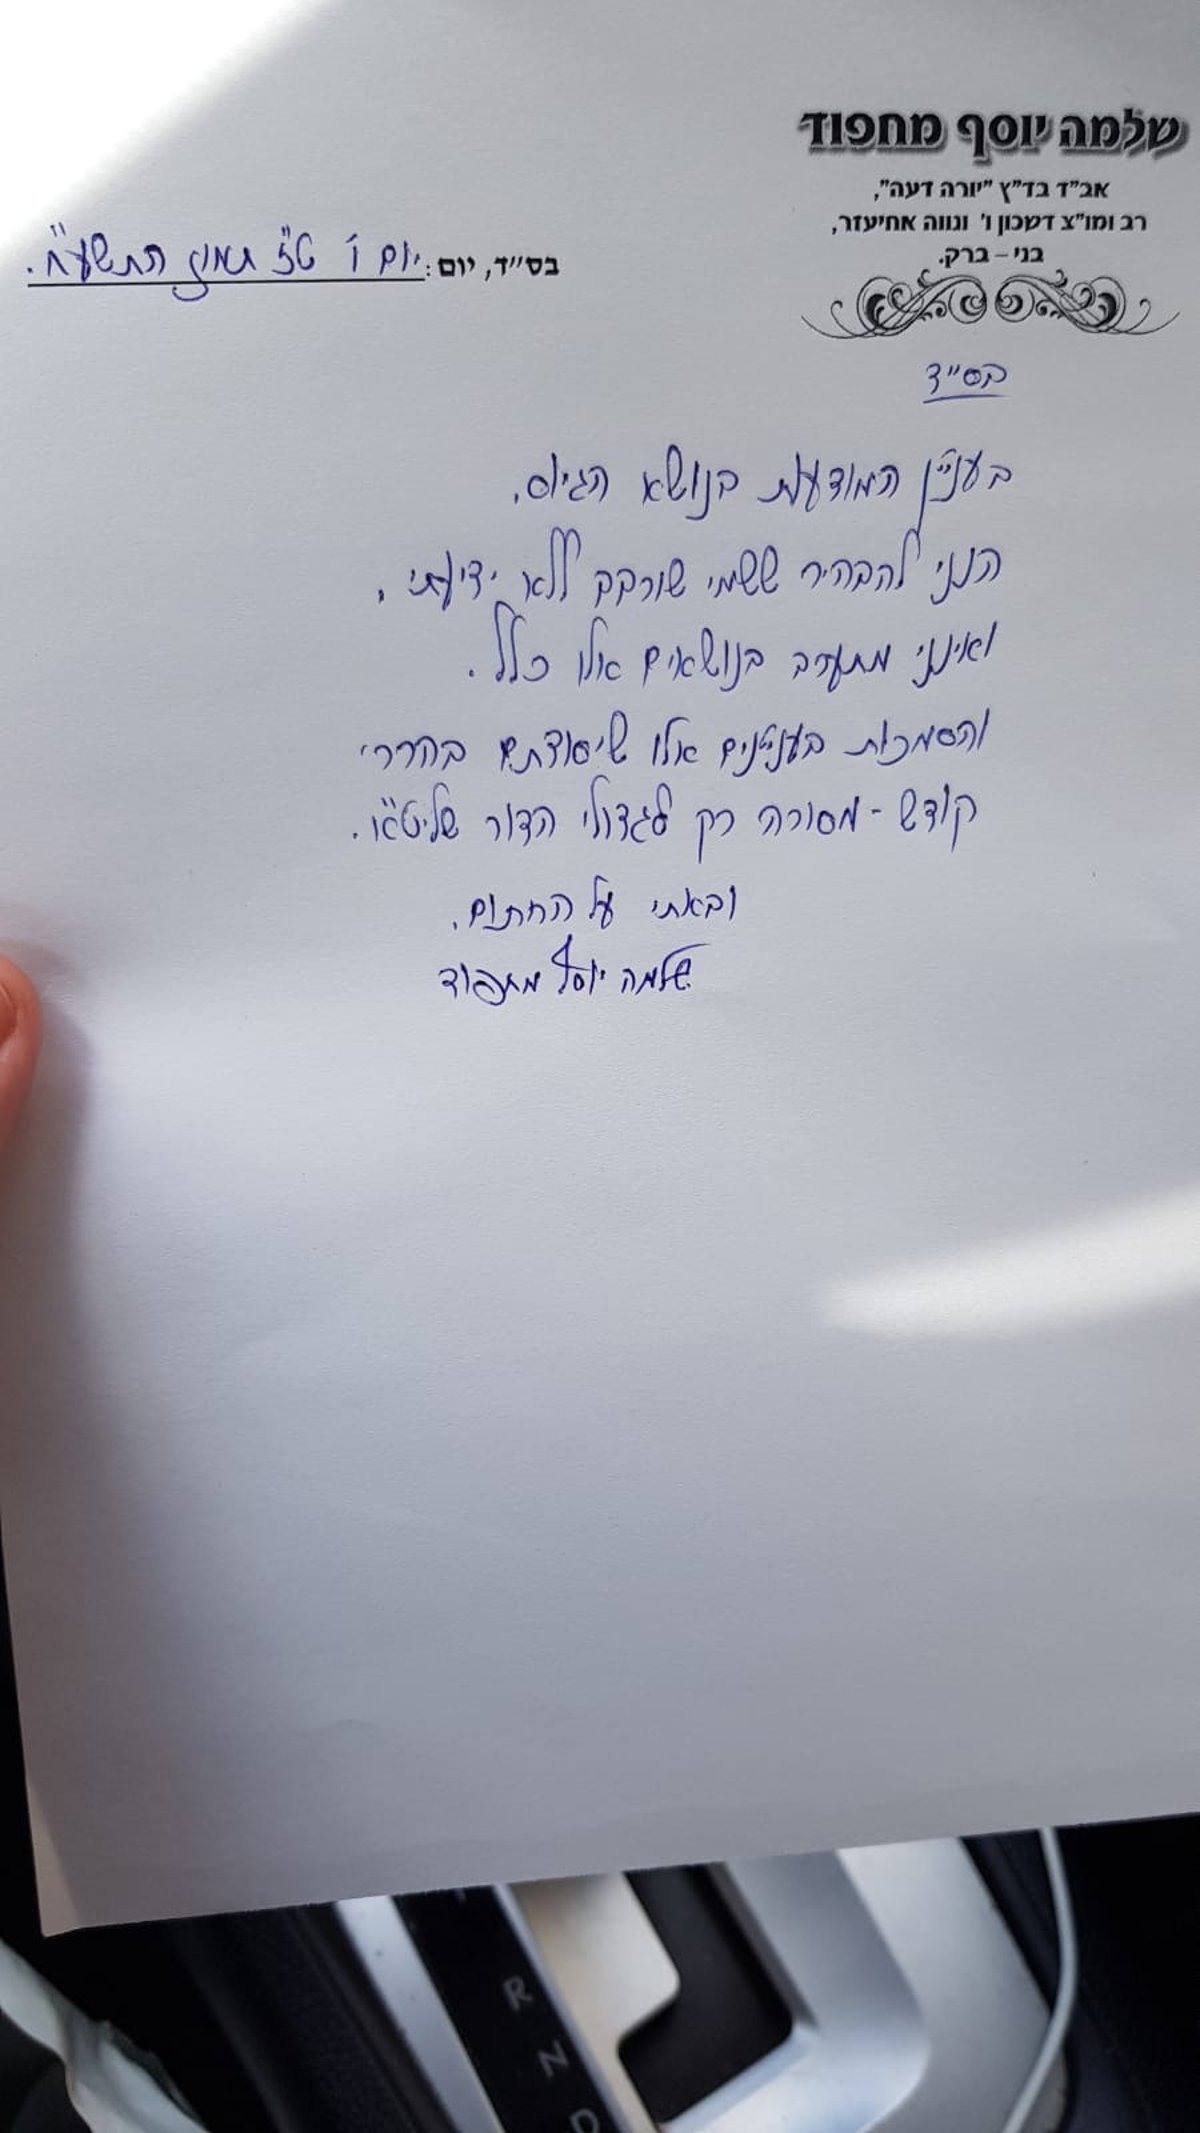 שלמה יוסף מחפוד
אב"ד בד"ץ "יורה דעה",
רב ומו"צ דשכון ו' ונווה אחיעזר,
בני - ברק.
בס"ד, יום: יום ו' ט"ז תמוז התשע"ח.
בס"ד
בעניין המודעות בנושא הגיוס,
הנני להבהיר ששמי שורבב ללא ידיעתי,
ואינני מתערב בנושאים אלו כלל.
והסמכות בעניינים אלו שיסודתם בהררי
קודש - מסורה רק לגדולי הדור שליט"א.
ובאתי על החתום,
שלמה יוסף מחפוד
R
N
D